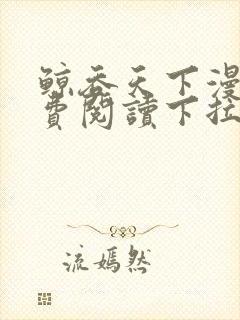 鲸吞天下漫
费阅读下拉
流嫣然